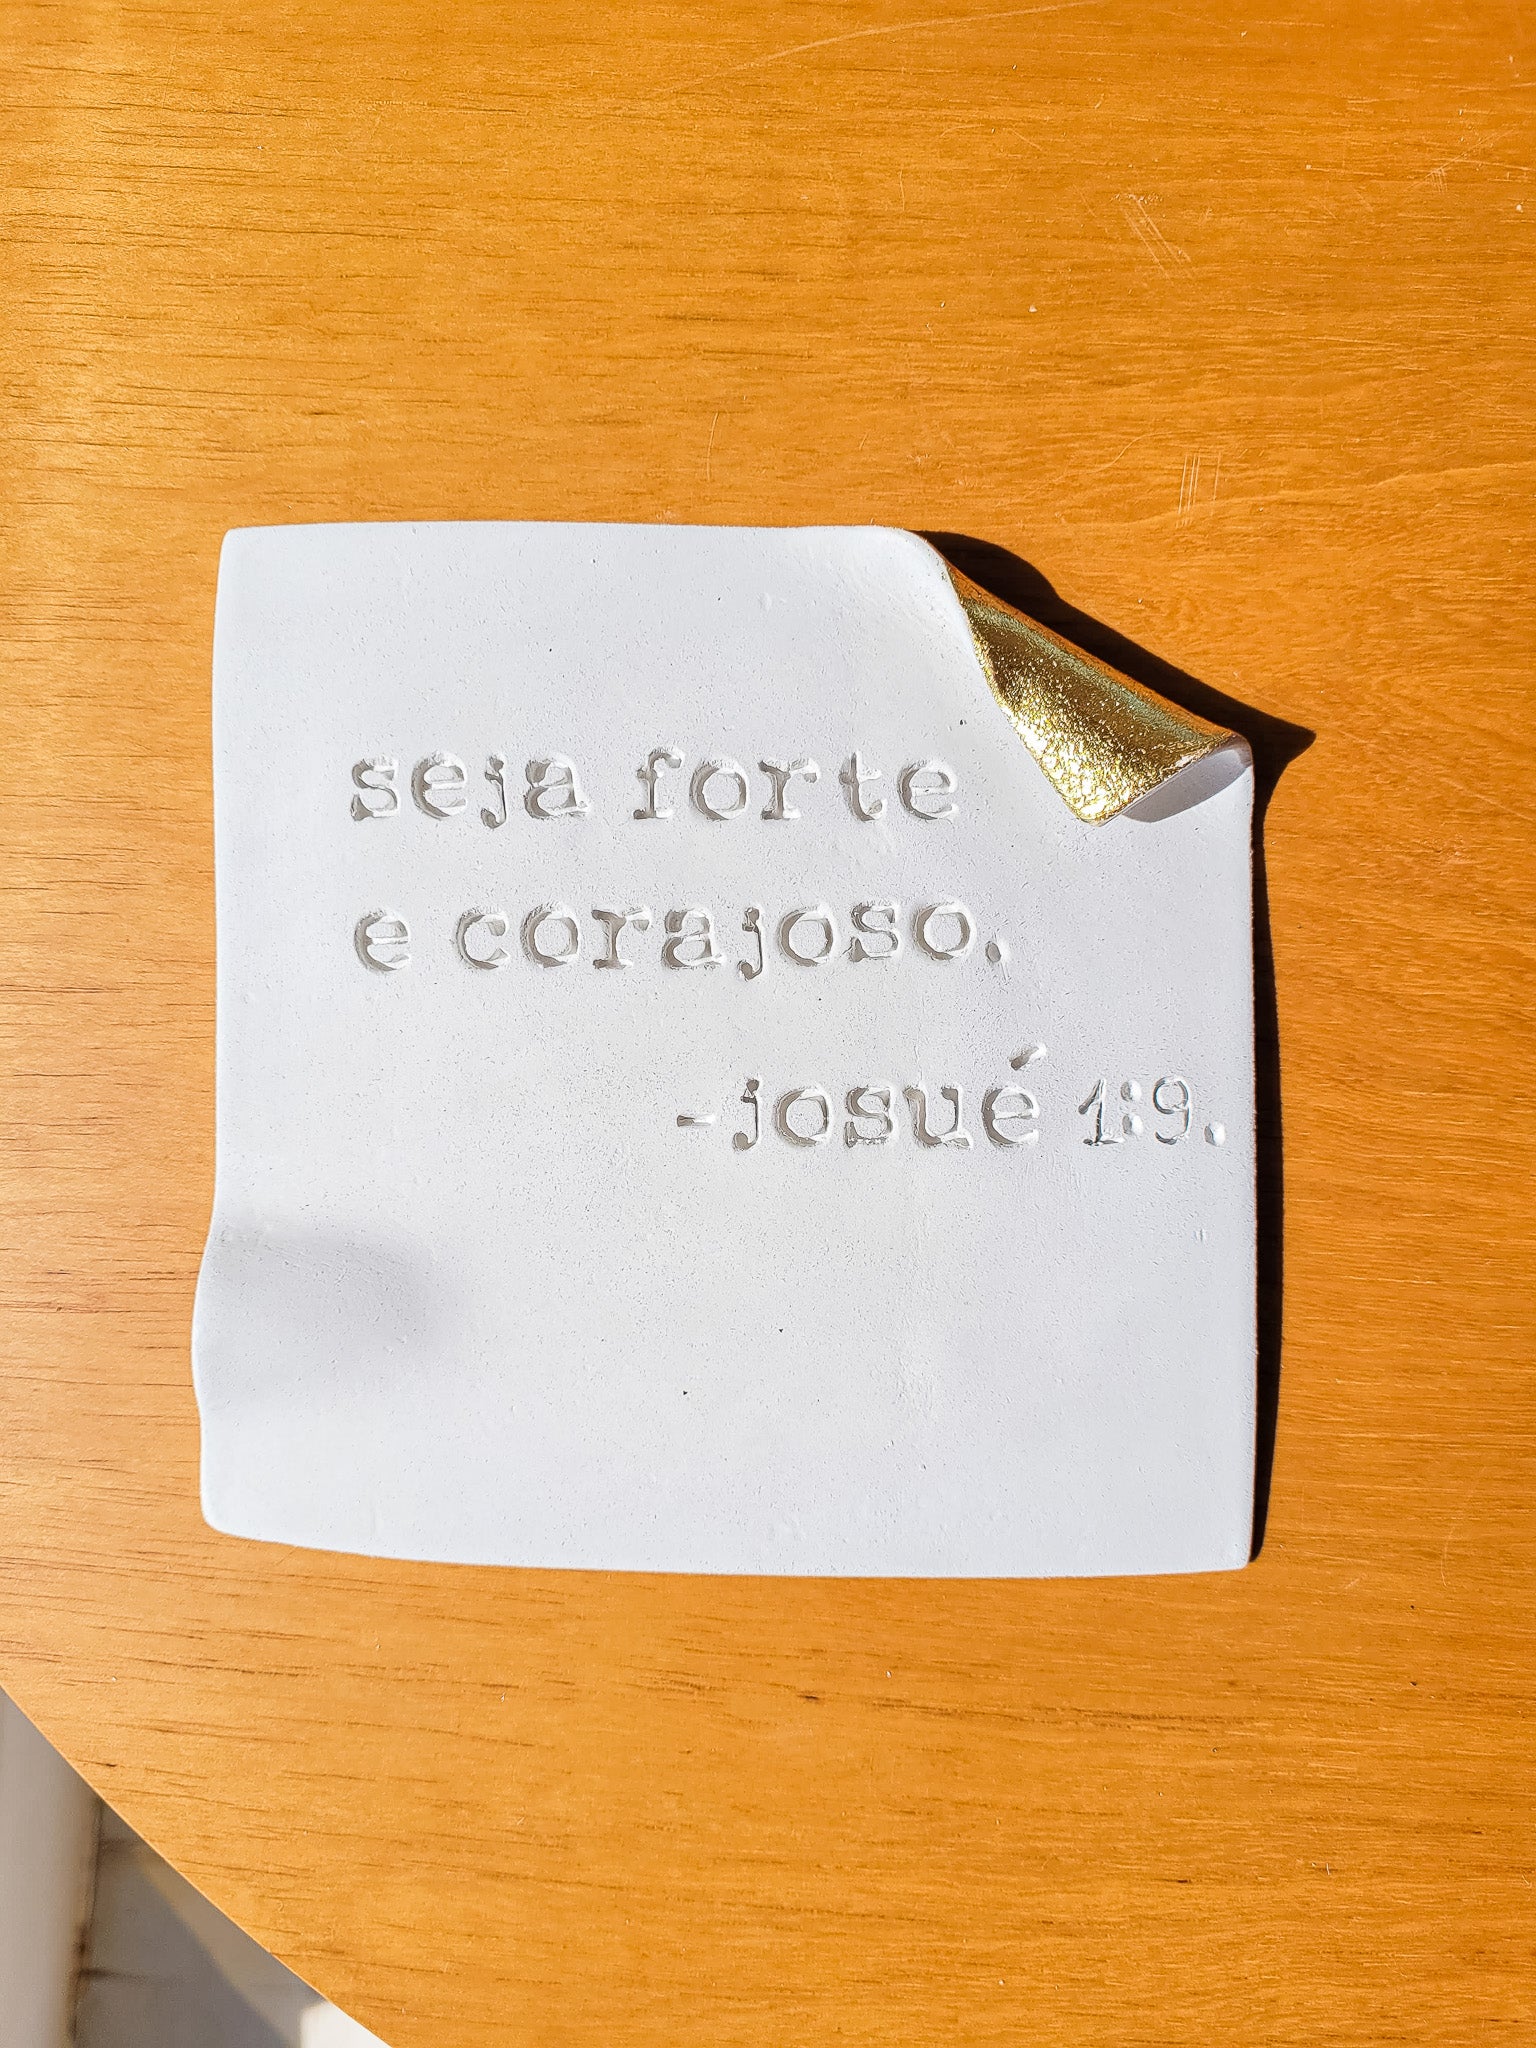 seja forte
e corajoso.
-josué 1:9.